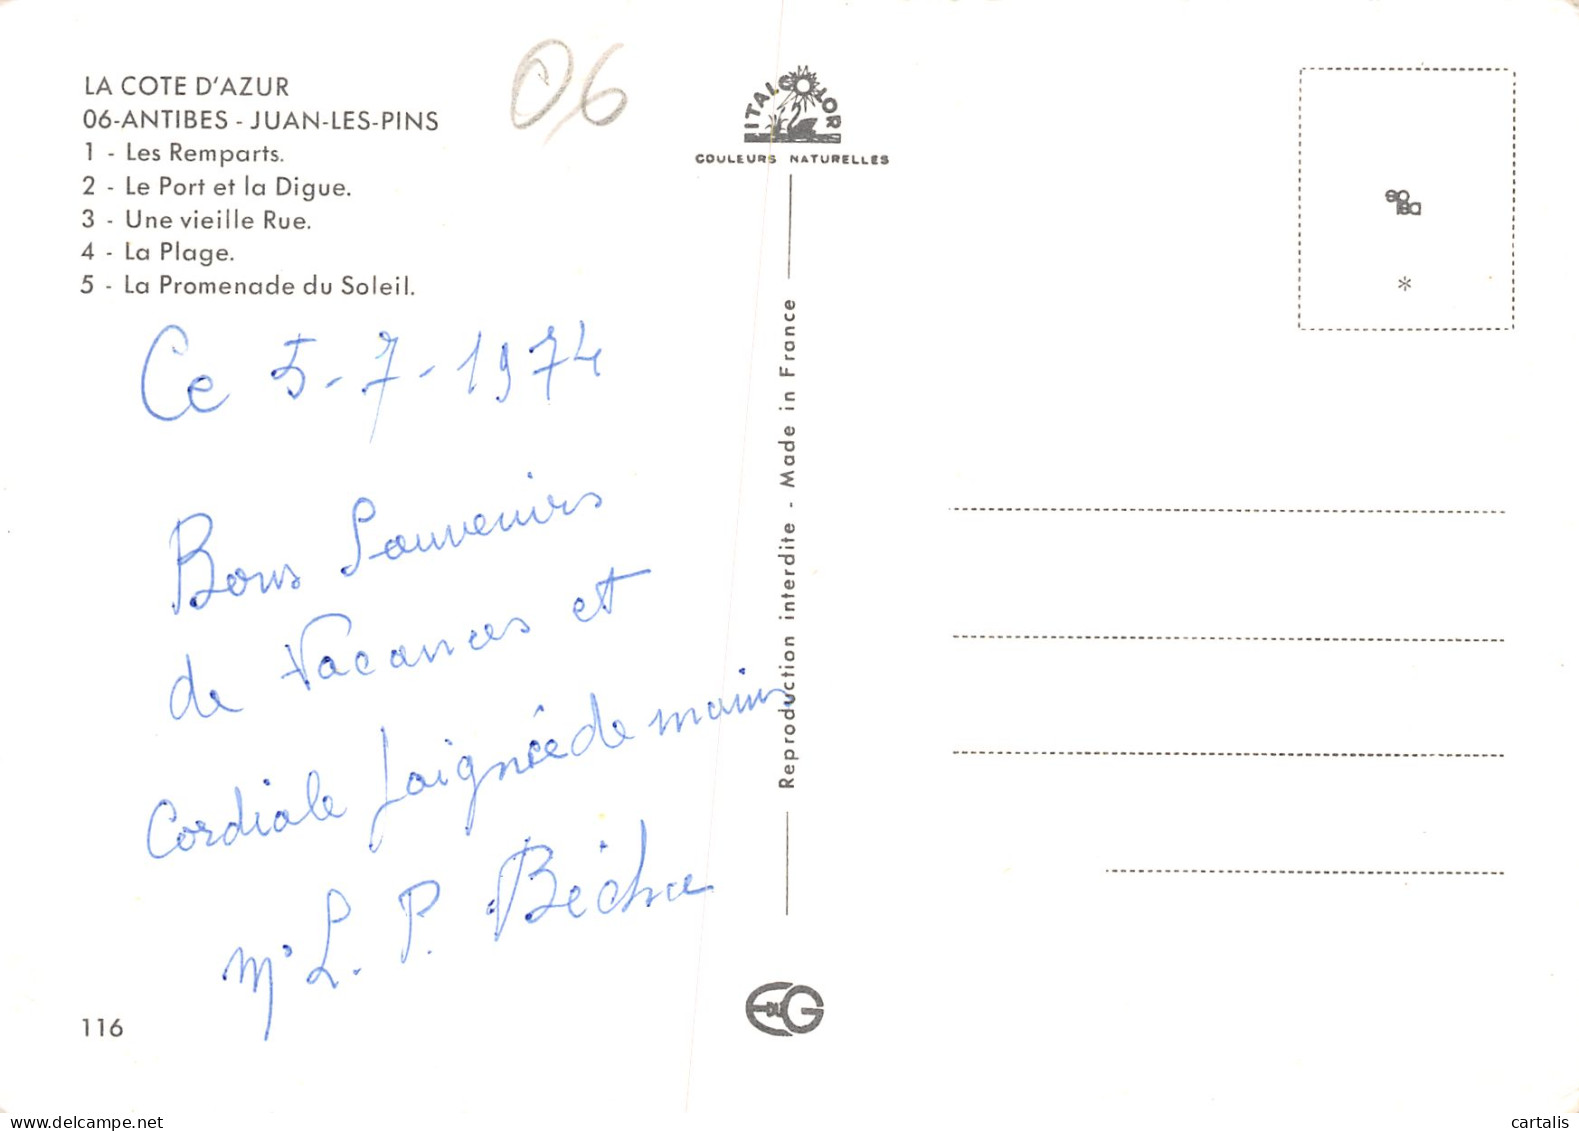 LA COTE D'AZUR
06-ANTIBES - JUAN-LES-PINS
1 - Les Remparts.
2 - Le Port et la Digue.
3 - Une vieille Rue.
4 - La Plage.
5 - La Promenade du Soleil.
06
Ce 5-7-1974
Bons Souvenirs
de Vacances et
Cordiale poignée de mains
Mr L. P. Béchu
116
ITALCOLOR
COULEURS NATURELLES
Reproduction interdite - Made in France
E DU G
*
www.delcampe.net
cartalis